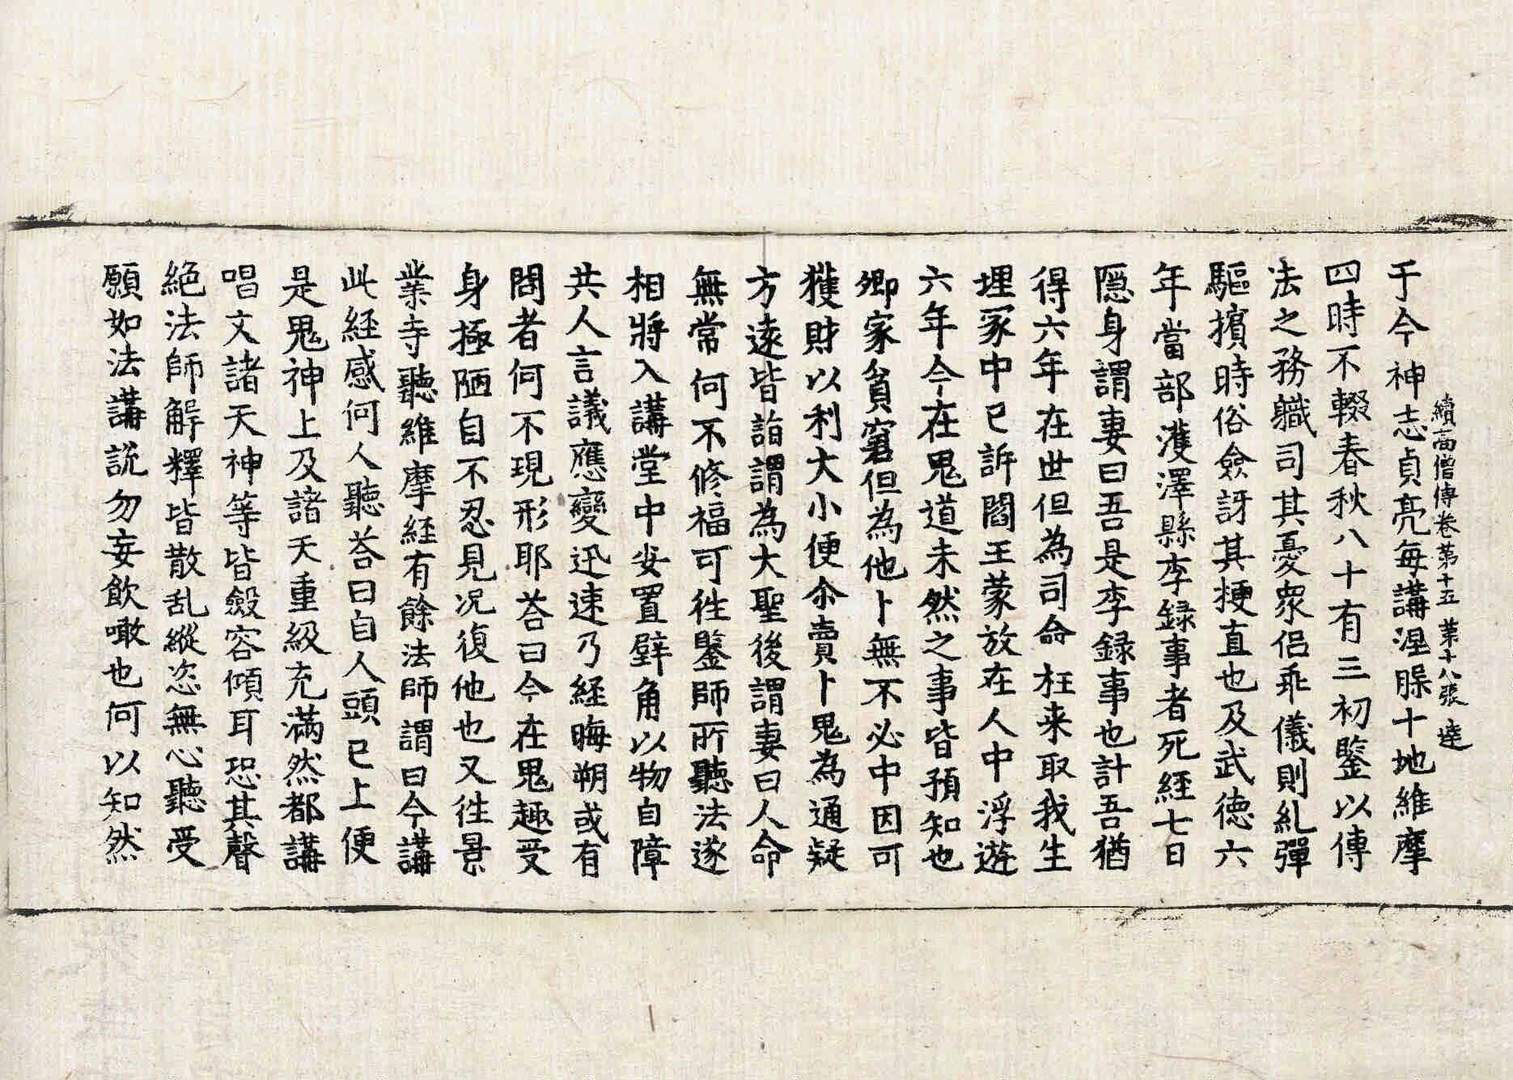 續高僧傳卷第十五 第十八張 達
于今神志貞亮每講涅脲十地維摩
四時不輟春秋八十有三初鑒以傳
法之務職司其憂眾侶乖儀則糺彈
驅擯時俗僉訝其挭直也及武德六
年當部濩澤縣李録事者死經七日
隠身謂妻曰吾是李録事也計吾猶
得六年在世但為司命枉来取我生
埋冢中已訴閻王蒙放在人中浮遊
六年今在鬼道未然之事皆預知也
卿家貧窘但為他卜無不必中因可
獲財以利大小便尒賣卜鬼為通疑
方逺皆詣謂為大聖後謂妻曰人命
無常何不修福可徃鑒師所聽法遂
相將入講堂中安置壁角以物自障
共人言議應變迅速乃經晦朔或有
問者何不現形耶荅曰今在鬼趣受
身極陋自不忍見况復他也又徃景
業寺聽維摩經有餘法師謂曰今講
此經感何人聽荅曰自人頭已上便
是鬼神上及諸天重級充滿然都講
唱文諸天神等皆斂容傾耳恐其聲
絕法師解釋皆散乱縱恣無心聽受
願如法講説勿妄飲噉也何以知然